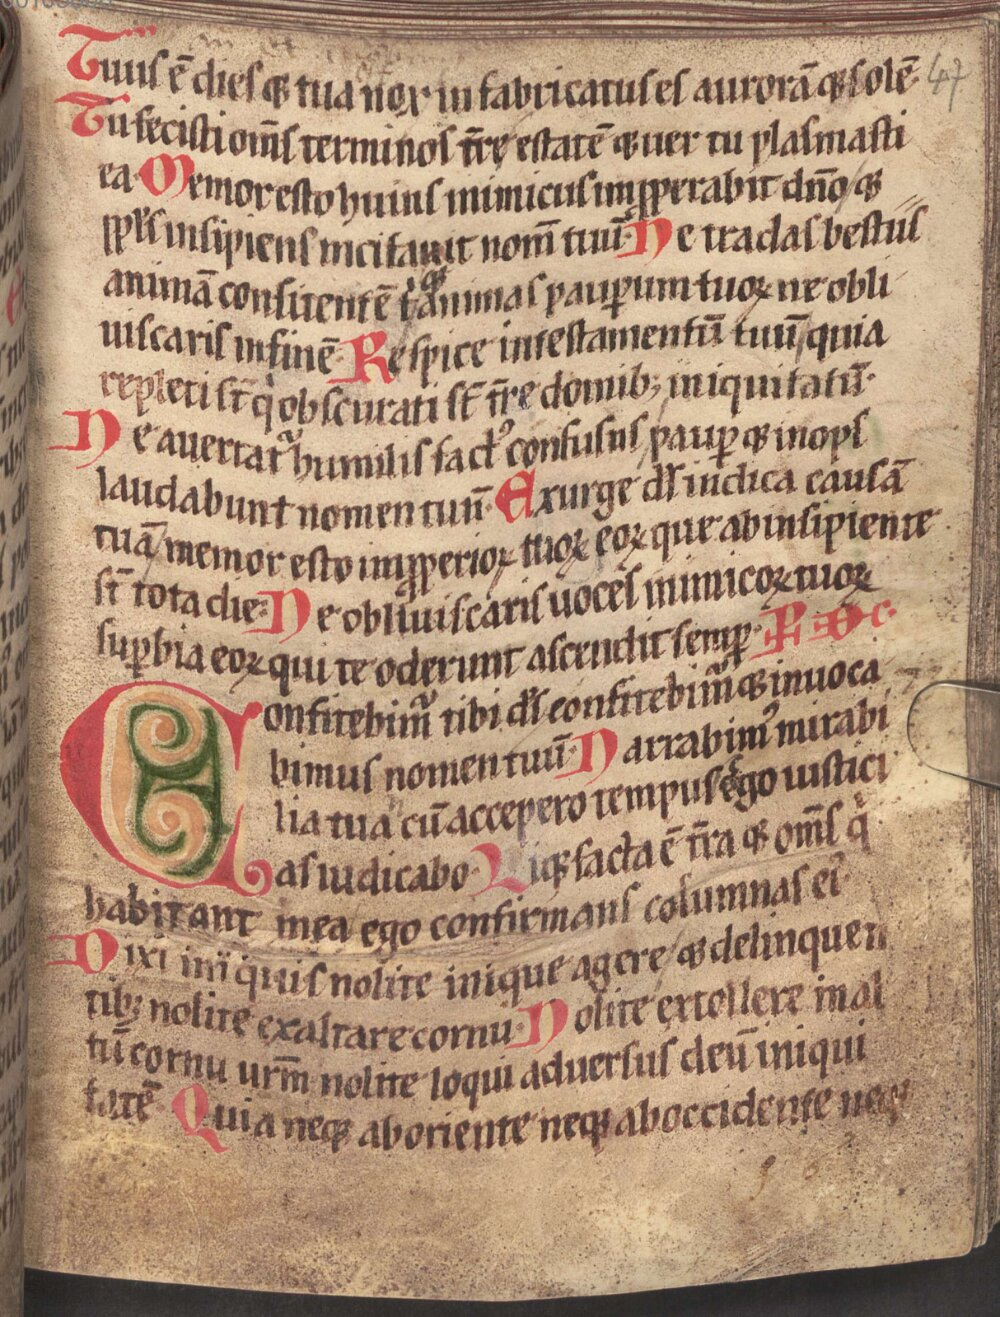 47
Tuus ē dies ꝗ tua nox tu fabricatus es aurorā ꝗ solē
Tu fecisti om̄s terminos t̄re estatē ꝗ uer tu plasmasti
ea Memor esto huius inimicus imꝓperabit dn̄o ꝗ
ppl's insipiens incitauit nom̄ tuū Ne tradas bestiis
animā confitentē t' ꝗ animas pauꝑum tuoꝝ ne obli
uiscaris in finē Respice in testamentū tuū quia
repleti st̄ qͥ obscurati st̄ t̄re domibꝫ iniquitatū
Ne auertatᷣ humilis fact᾿ confusus paupꝑ ꝗ inops
laudabunt nomen tuū Exurge ds̄ iudica causā
tuā memor esto imꝓperioꝝ tuoꝝ eoꝝ que ab insipiente
st̄ tota die Ne obliuiscaris uoces inimicoꝝ tuoꝝ
suꝑbia eoꝝ qui te oderunt ascendit semꝑ
Confitebim᾿ tibi ds̄ confitebim᾿ ꝗ inuoca
bimus nomen tuū Narrabim᾿ mirabi
lia tua cū accepero tempus ego iustici
as iudicabo Liq̄facta ē t̄ra ꝗ om̄s qͥ
habitant in ea ego confirmaui columnas ei᾿
Dixi iniquis nolite inique agere ꝗ delinquen
tibꝫ nolite exaltare cornu Nolite extollere in al
tū cornu urm̄ nolite loqui aduersus deū iniqui
tatē Quia neqꝫ ab oriente neqꝫ ab occidente neqꝫ